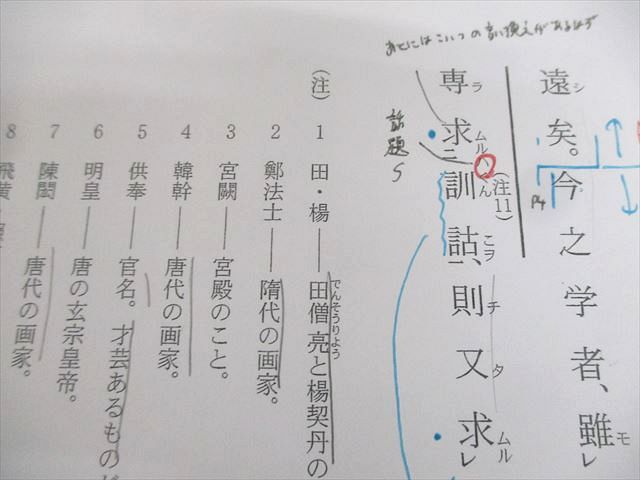 あとにはこいつの言い換えがあるはず
遠シ矣。今之学者、雖モレ
専ラ求ムル二訓くん詁こヲ一、則チ又タ求ムルレ
(注11)
話題
(注)
1 田・楊――田僧亮と楊契丹の
でんそうりょう
2 鄭法士――隋代の画家。
3 宮闕――宮殿のこと。
4 韓幹――唐代の画家。
5 供奉――官名。才芸あるものが
6 明皇――唐の玄宗皇帝。
7 陳閎――唐代の画家。
8 飛黄